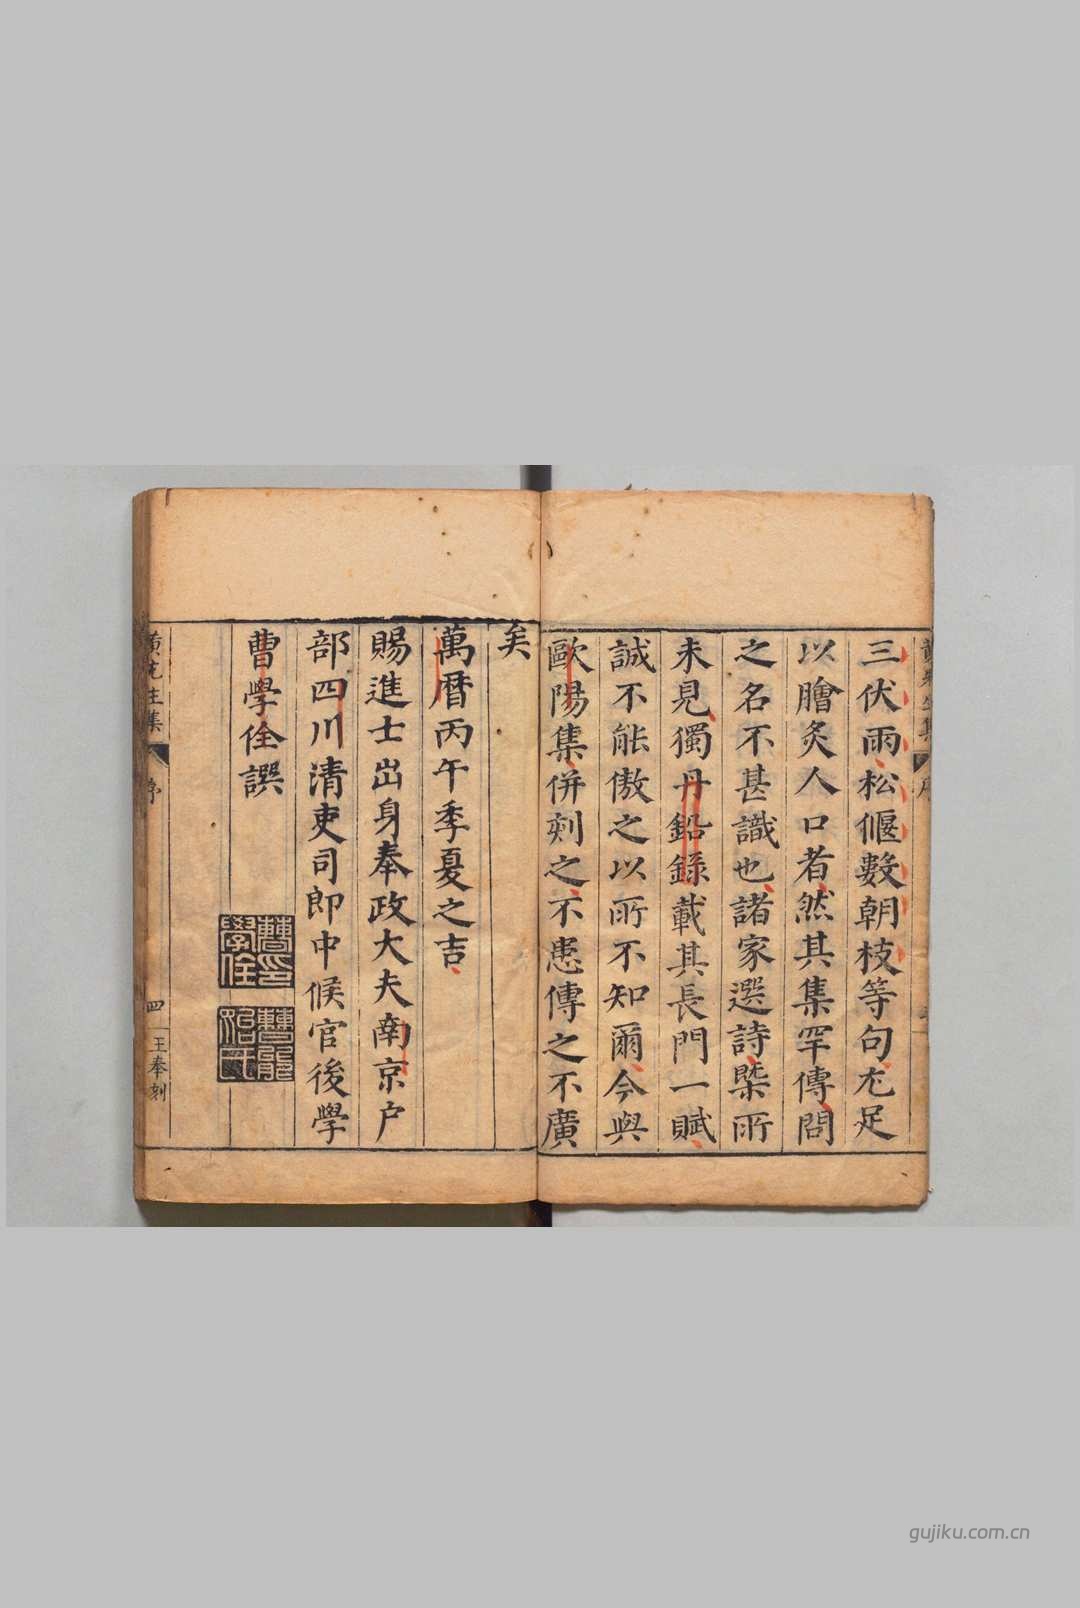 三伏雨松偃數朝枝等句尤足
以膾炙人口者然其集罕傳問
之名不甚識也諸家選詩槩所
未見獨丹鉛錄載其長門一賦
誠不能傲之以所不知爾今與
歐陽集併刻之不患傳之不廣
矣
萬曆丙午季夏之吉
賜進士出身奉政大夫南京户
部四川清吏司郎中候官後學
曹學佺譔
曹印學佺
曹能始氏
黄先生集
序
四
王奉刻
gujiku.com.cn